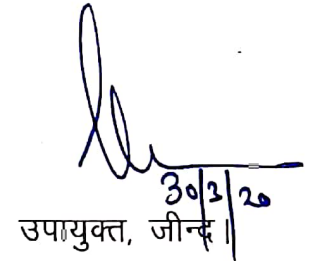 30/3/20
उपायुक्त, जीन्द।